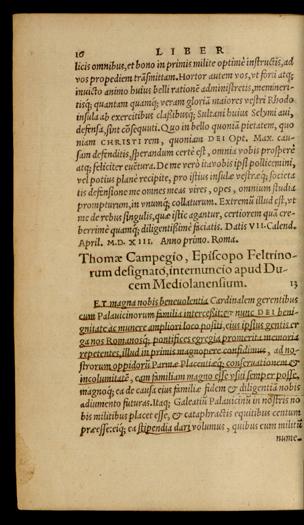 16 LIBER
licis omnibus, et bono in primis milite optimè instructis, ad
vos propediem trãsmittam. Hortor autem vos, vt forti atq;
inuicto animo huius belli rationē administretis, memineri-
tisq; quantam quamq; veram gloriã maiores vestri Rhodo
insula ab exercitibus classibusq; Sultani huius Selymi aui,
defensa, sint cõsequuti. Quo in bello quoniã pietatem, quo
niam CHRISTI rem, quoniam DEI Opt. Max. cau-
sam defenditis, sperandum certè est, omnia vobis prosperè
atq; feliciter euẽtura. De me verò ita vobis ipsi pollicemini,
vel potius planè recipite, pro istius insulæ vestræq; societa
tis defensione me omnes meas vires, opes, omnium studia
prompturum, in vnumq; collaturum. Extremũ illud est, vt
me de rebus singulis, quæ istic agantur, certiorem quã cre-
berrimè quamq; diligentißimè faciatis. Datis VII. Calend.
April. M. D. XIII. Anno primo. Roma.
Thomæ Campegio, Episcopo Feltrino-
rum designato, internuncio apud Du-
cem Mediolanensium. 13
ET magna nobis beneuolentia Cardinalem gerentibus
cum Palauicinorum familia intercessit: & nunc DEI beni-
gnitate ac munere ampliori loco positi, eius ipsius gentis er
ga nos Romanosq; pontifices egregia promerita memoria
repetentes, illud in primis magnopere confidimus, ad no-
strorum oppidorũ Parmæ Placentiæq; conseruationem &
incolumitatẽ, eam familiam magno esse vsui semper posse,
magnoq; ea de causa eius familiæ fidem & diligentiã nobis
adiumento futuras. Itaq; Galeatiũ Palauicinũ in nostris no
bis militibus placet esse, & cataphractis equitibus centum
præesse: eiq; ea stipendia dari volumus, quibus cum militũ
nume-